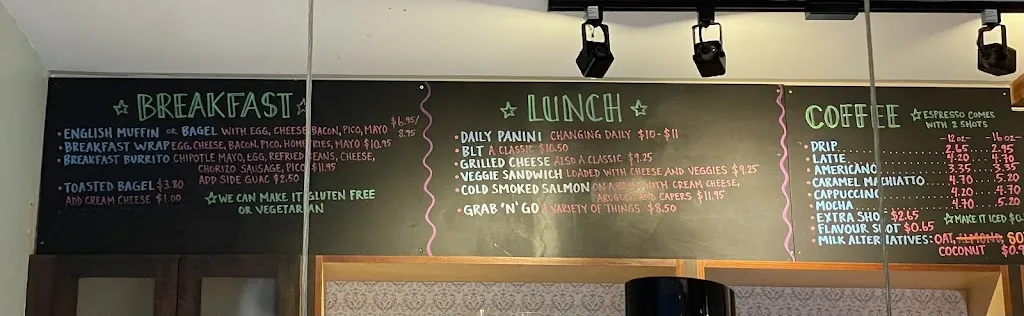 ☆ BREAKFAST ☆
• ENGLISH MUFFIN OR BAGEL WITH EGG, CHEESE, BACON, PICO, MAYO $6.95/
8.95
• BREAKFAST WRAP EGG, CHEESE, BACON, PICO, HOME FRIES, MAYO $10.95
• BREAKFAST BURRITO CHIPOTLE MAYO, EGG, REFRIED BEANS, CHEESE,
CHORIZO SAUSAGE, PICO $11.95
ADD SIDE GUAC $2.50
• TOASTED BAGEL $3.80
ADD CREAM CHEESE $1.00
☆ WE CAN MAKE IT GLUTEN FREE
OR VEGETARIAN
☆ LUNCH ☆
• DAILY PANINI CHANGING DAILY $10-$11
• BLT A CLASSIC $10.50
• GRILLED CHEESE ALSO A CLASSIC $9.25
• VEGGIE SANDWICH LOADED WITH CHEESE AND VEGGIES $9.25
• COLD SMOKED SALMON ON A BAGEL WITH CREAM CHEESE,
ARUGULA AND CAPERS $11.95
• GRAB 'N' GO A VARIETY OF THINGS $8.50
COFFEE ☆ ESPRESSO COMES
WITH 2 SHOTS
12oz 16oz
• DRIP 2.65 2.95
• LATTE 4.20 4.70
• AMERICANO 3.35 3.35
• CARAMEL MACCHIATTO 4.70 5.20
• CAPPUCCINO 4.20 4.70
• MOCHA 4.70 5.20
• EXTRA SHOT $2.65 ☆ MAKE IT ICED $0.
• FLAVOUR SHOT $0.65
• MILK ALTERNATIVES: OAT, ALMOND, SO
COCONUT $0.